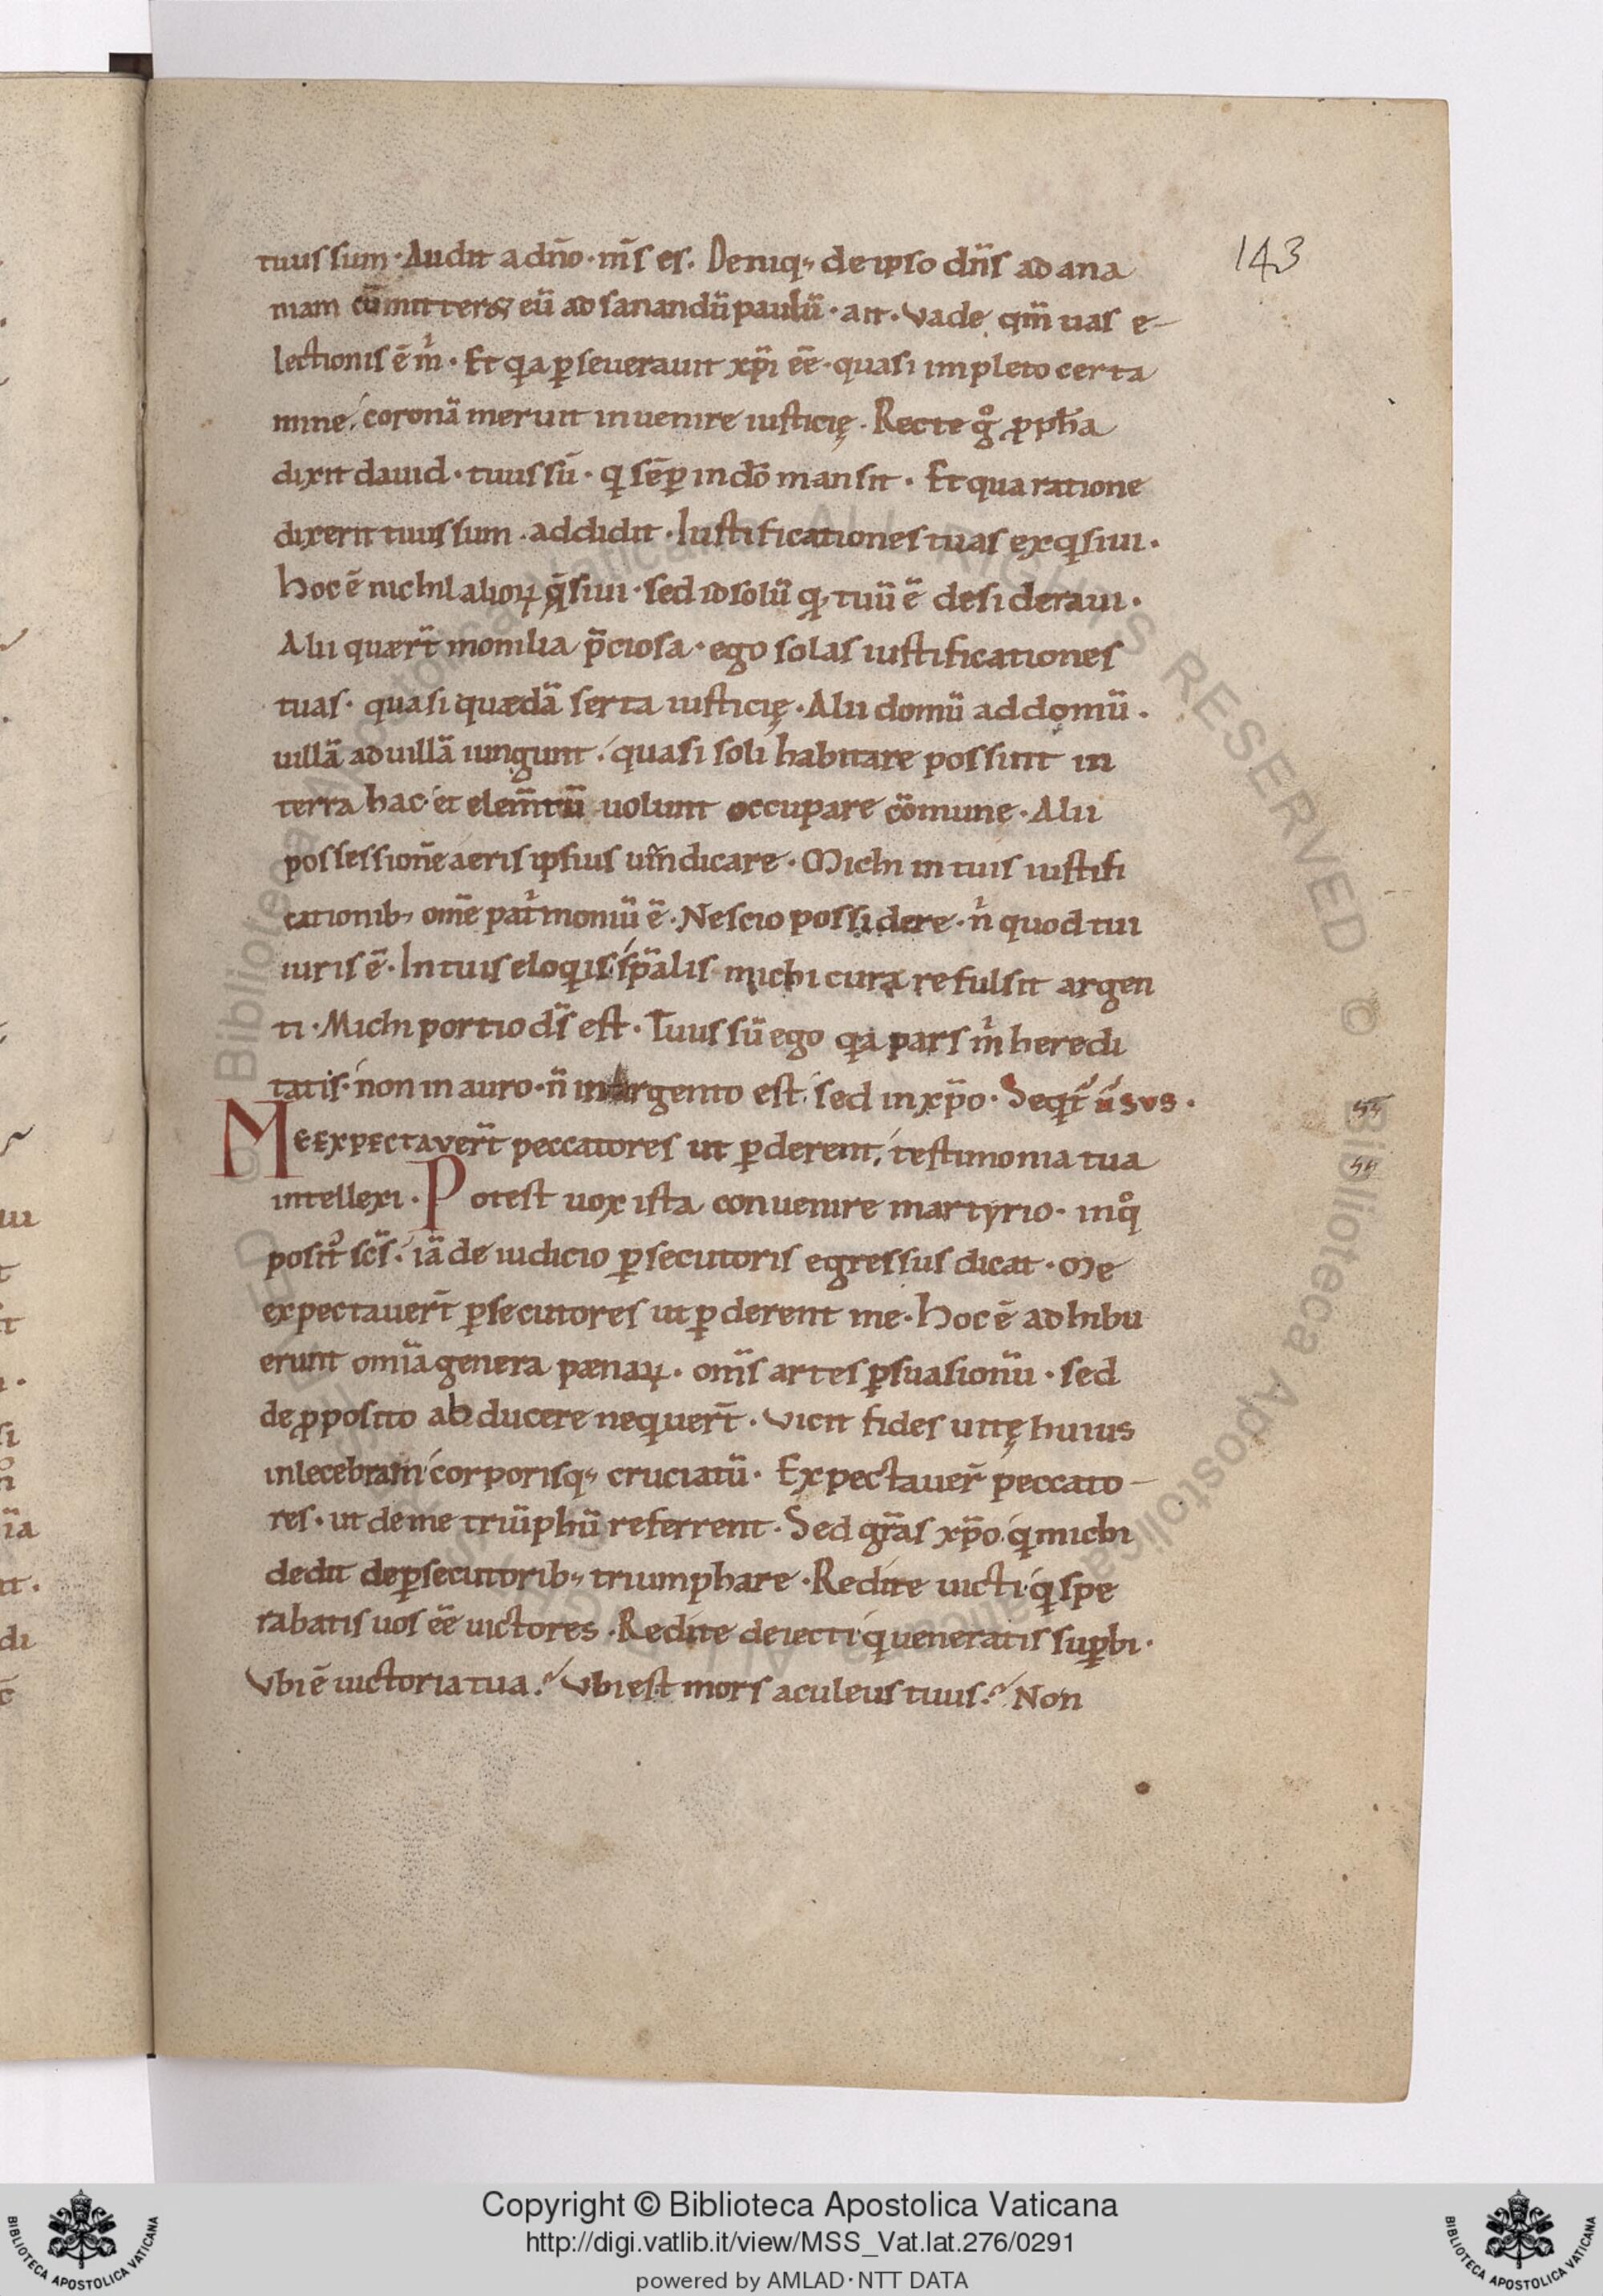 143
tuus sum · Audit a dño · m̄s es. Deniq; de ipso dn̄s ad ana
niam cū mitter& eū ad sanandū paulū · ait · Vade qm̄ uas e-
lectionis ē m̊ · Et qa ꝑseuerauit xp̄i eē · quasi impleto certa
mine, coronā meruit inuenire iusticię · Recte g̊ ꝓph̄a
dixit dauid · tuus sū · q sēꝑ in dō mansit · Et qua ratione
dixerit tuus sum · addidit · Iustificationes tuas exqsiui ·
Hoc ē nichil alioꝝ q̄siui · sed id solū qd tuū ē desideraui ·
Alii quært̄ monilia p̄ciosa · ego solas iustificationes
tuas · quasi quædā serta iusticię · Alii domū ad domū ·
uillā ad uillā iungunt · quasi soli habitare possint in
terra hac · et elem̄tū uolunt occupare cōmune · Alii
possessionē aeris ipsius uīndicare · Michi in tuis iustifi
cationib; om̄e patͥmoniū ē · Nescio possidere · nͥ quod tui
iuris ē · In tuis eloqis sp̄alis michi cura refulsit argen
ti · Michi portio dš est · Tuus sū ego qa pars mͥ heredi
tatis · non in auro · n̄ in argento est · sed in xp̄o · Seqt̄ ūsus ·
Me expectavert̄ peccatores ut ꝑderent, testimonia tua
intellexi · Potest uox ista conuenire martyrio · in q̊
posit᷒ scš · iā de iudicio ꝑsecutoris egressus dicat · Me
expectauert̄ ꝑsecutores ut ꝑderent me · Hoc ē adhibu
erunt omīa genera pænaꝝ · om̄s artes ꝑsuasionū · sed
de ꝓposito abducere nequert̄ · Vicit fides uitę huius
inlecebram corporisq; cruciatū · Expectauer̄ peccato-
res · ut de me triūphū referrent · Sed gr̄as xp̄o q michi
dedit de ꝑsecutorib; triumphare · Redite uicti q spe
rabatis uos eē uictores · Redite deiecti q ueneratis suꝑbi ·
Vbi ē uictoria tua? Vbi est mors aculeus tuus? Non
Copyright © Biblioteca Apostolica Vaticana
http://digi.vatlib.it/view/MSS_Vat.lat.276/0291
powered by AMLAD·NTT DATA
BIBLIOTECA APOSTOLICA VATICANA
BIBLIOTECA APOSTOLICA VATICANA